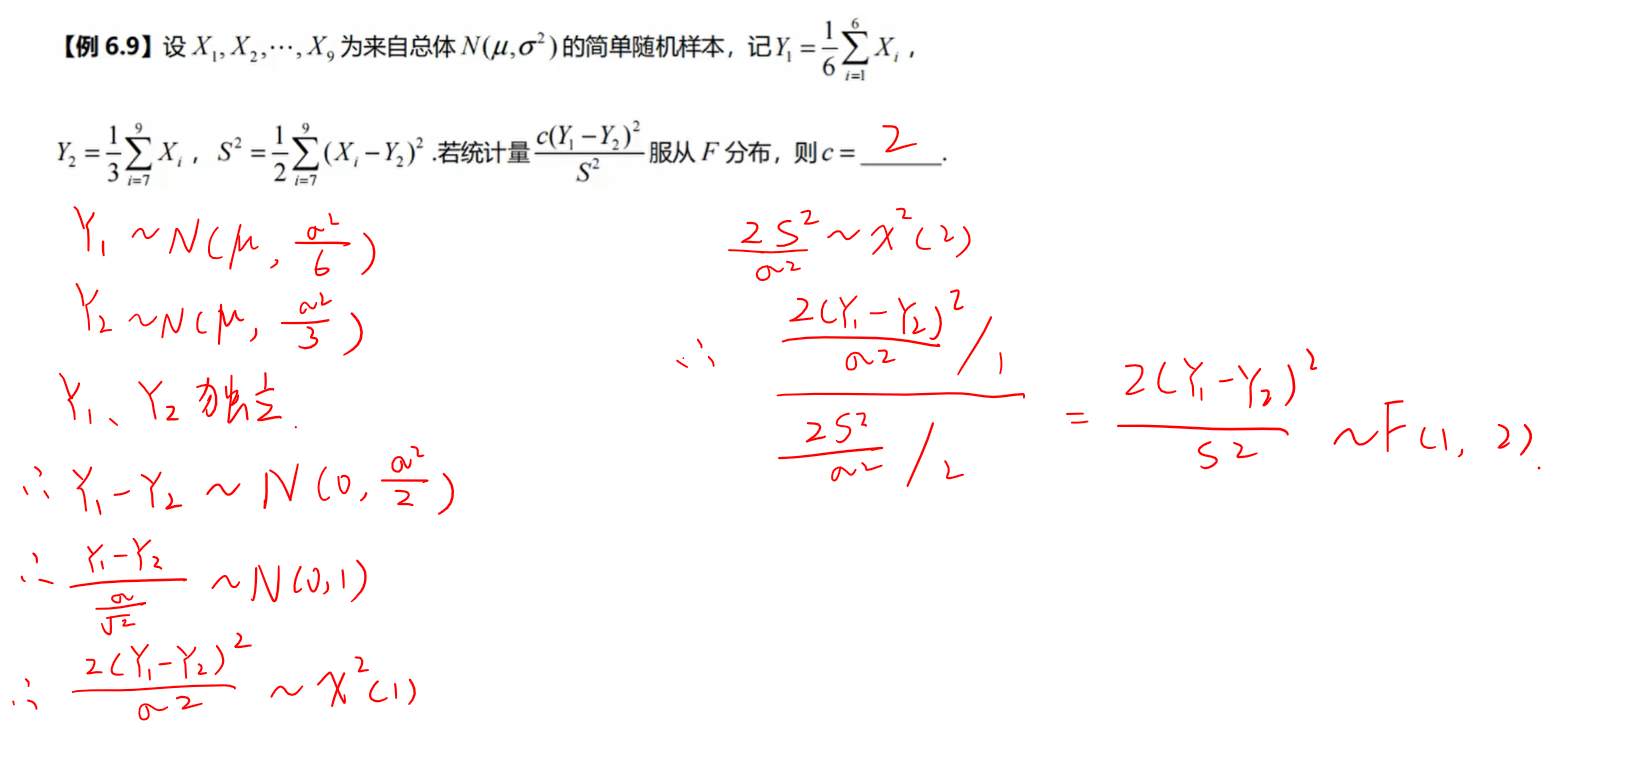 【例 6.9】设 X₁, X₂, ⋯, X₉ 为来自总体 N(μ,σ²) 的简单随机样本，记 Y₁ = 1/6 ∑_{i=1}^{6} X_i ，
Y₂ = 1/3 ∑_{i=7}^{9} X_i ，S² = 1/2 ∑_{i=7}^{9} (X_i − Y₂)² .若统计量 c(Y₁ − Y₂)²/S² 服从 F 分布，则 c = 2 .
Y₁ ~ N(μ, σ²/6)
Y₂ ~ N(μ, σ²/3)
Y₁、Y₂ 独立.
∴ Y₁ − Y₂ ~ N(0, σ²/2)
∴ (Y₁ − Y₂)/(σ/√2) ~ N(0,1)
∴ 2(Y₁ − Y₂)²/σ² ~ χ²(1)
2S²/σ² ~ χ²(2)
∴ (2(Y₁ − Y₂)²/σ² / 1)/(2S²/σ² / 2) = 2(Y₁ − Y₂)²/S² ~ F(1, 2).